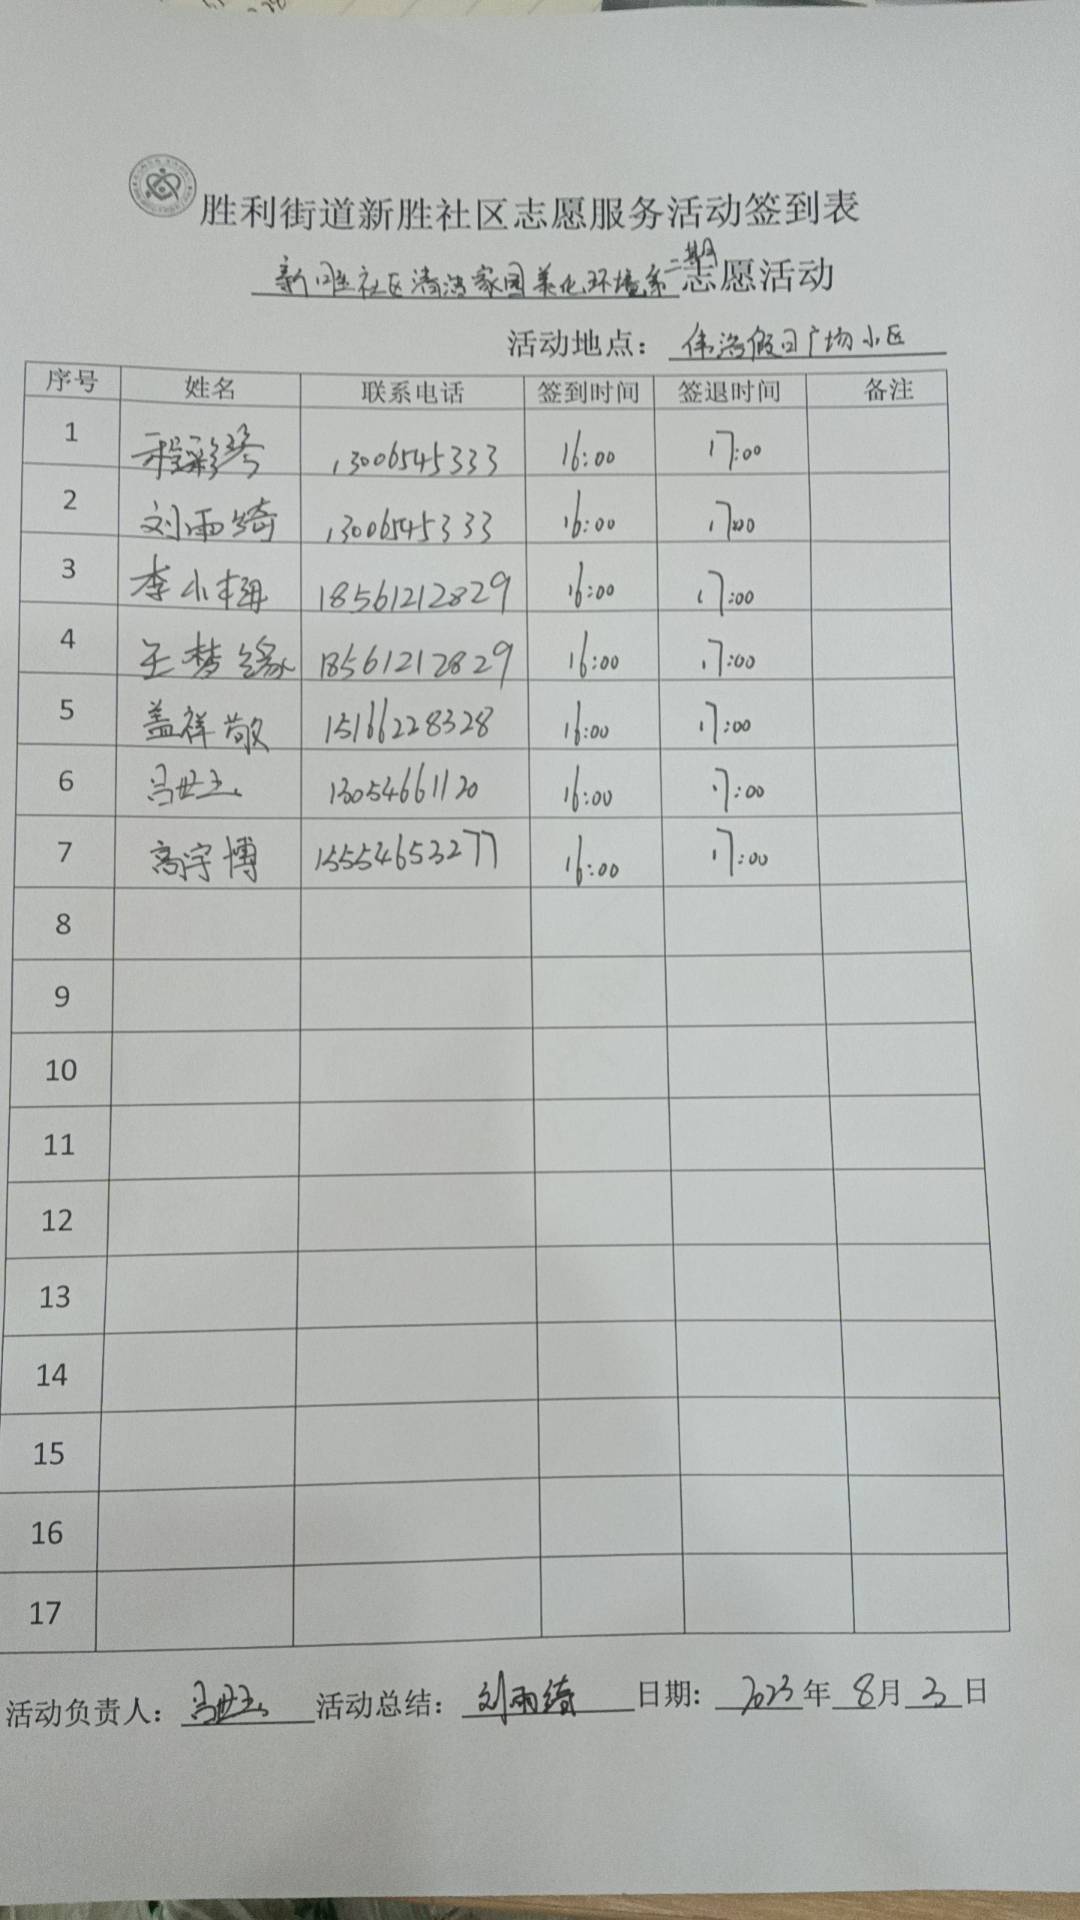 胜利街道新胜社区志愿服务活动签到表
新胜社区清洁家园美化环境第二期志愿活动
活动地点：伟浩假日广场小区
序号 姓名 联系电话 签到时间 签退时间 备注
1 程彩琴 13006545333 16:00 17:00
2 刘雨绮 13006545333 16:00 17:00
3 李小梅 18561212829 16:00 17:00
4 王梦缘 18561212829 16:00 17:00
5 盖祥敬 15166228328 16:00 17:00
6 冯世玉 13054661120 16:00 17:00
7 高宇博 15554653277 16:00 17:00
8
9
10
11
12
13
14
15
16
17
活动负责人：冯世玉 活动总结：刘雨绮 日期：2023年8月3日